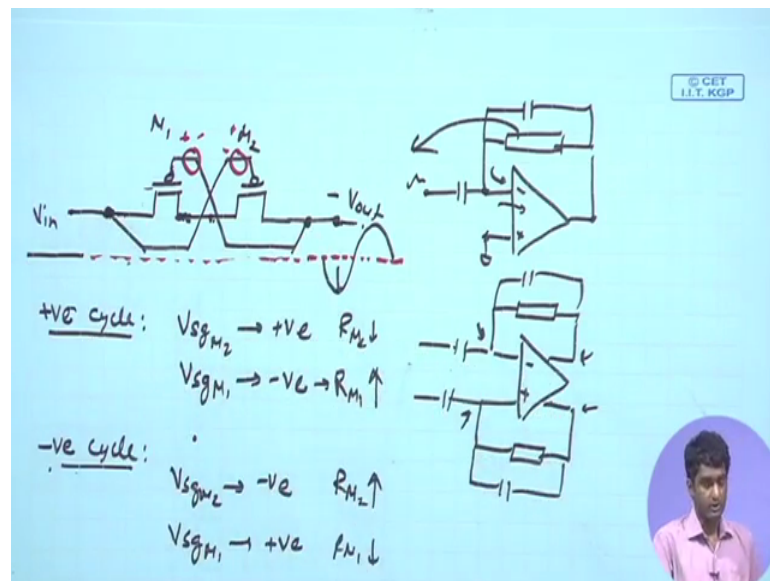 © CET
I.I.T. KGP
M1
M2
+ -
+ -
Vin
- Vout
- 
+
-
+
+ve cycle: VsgM2 → +ve RM2↓
VsgM1 → -ve → RM1↑
-ve cycle:
VsgM2 → -ve RM2↑
VsgM1 → +ve RM1↓